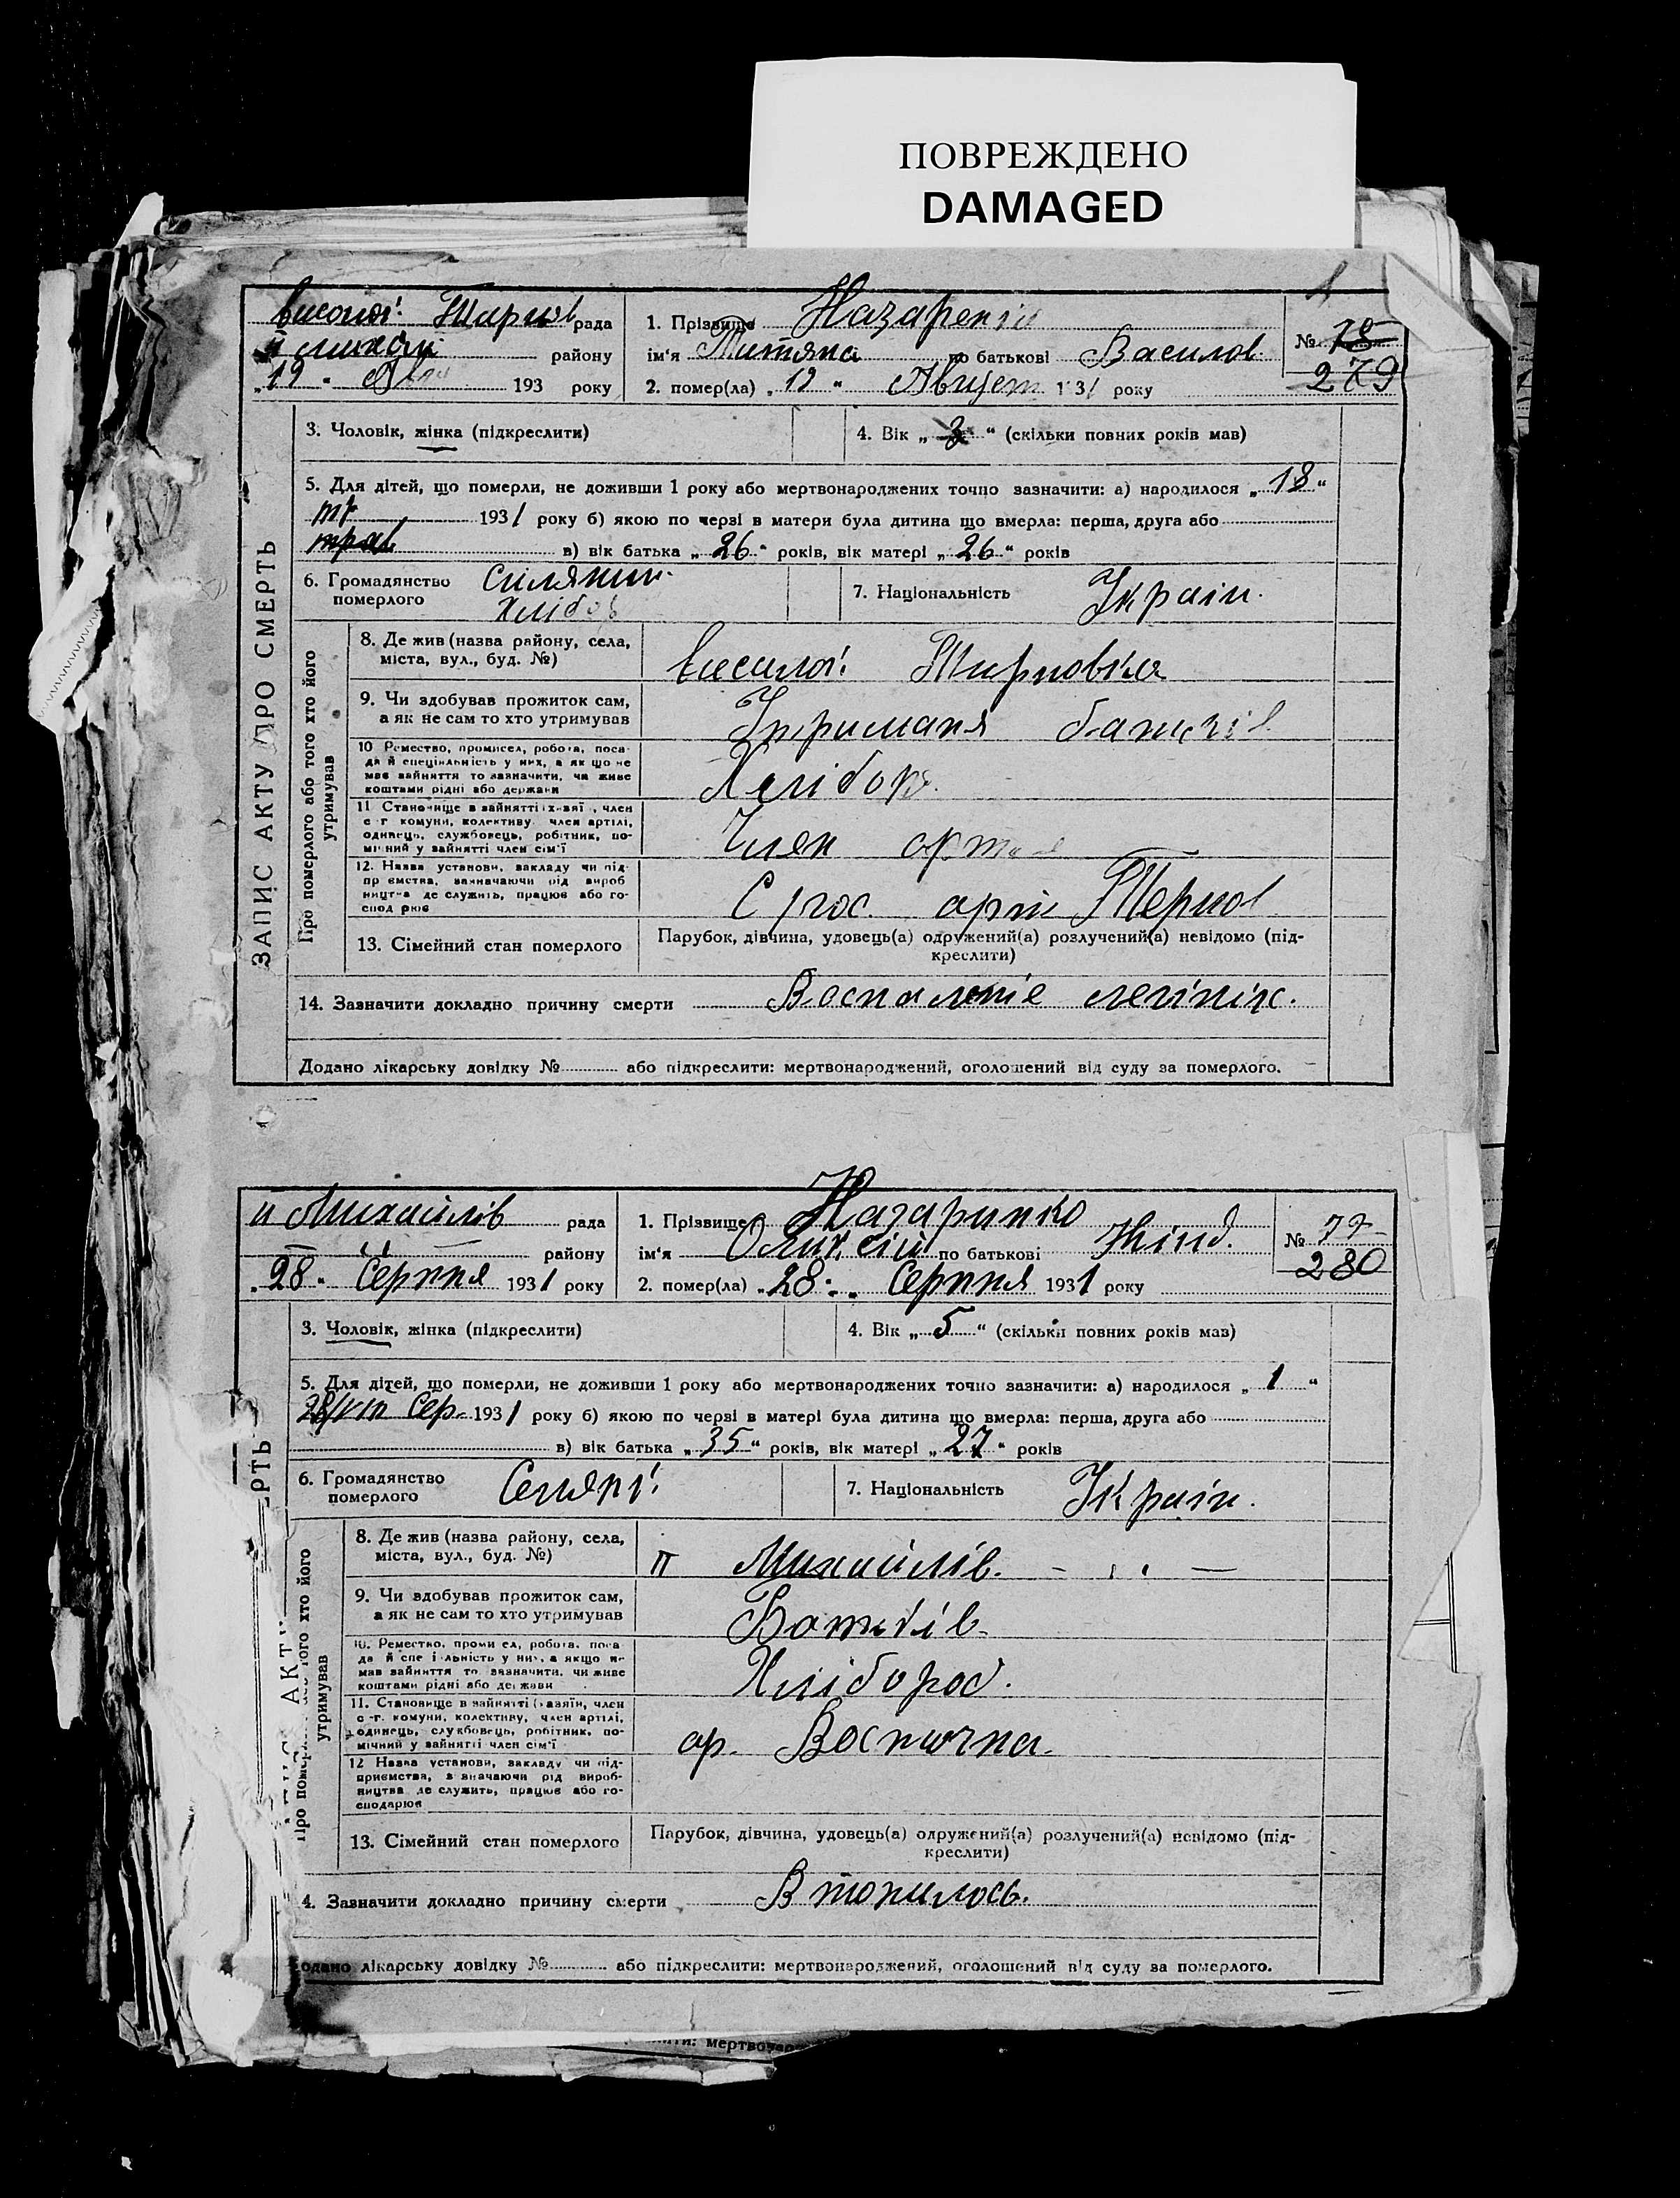 ПОВРЕЖДЕНО
DAMAGED
рада
району
„19" 193 року
1. Прізвище Назаренко
ім'я Титяна по батькові Василов
2. помер(ла) „19" Август 1931 року
№ 78
279
ЗАПИС АКТУ ПРО СМЕРТЬ
3. Чоловік, жінка (підкреслити)
4. Вік „3" (скільки повних років мав)
5. Для дітей, що померли, не доживши 1 року або мертвонароджених точно зазначити: а) народилося „18"
1931 року б) якою по черзі в матери була дитина що вмерла: перша, друга або
трав в) вік батька „26" років, вік матері „26" років
6. Громадянство
померлого
Силянин
хлібор
7. Національність Украін.
Про померлого або того хто його
утримував
8. Де жив (назва району, села,
міста, вул., буд. №)
Тирновка
9. Чи здобував прожиток сам,
а як не сам то хто утримував
Утриманя батьків
10 Ремество, промисел, робота, поса-
да й спеціяльність у них, а як що не
мав зайняття то зазначити, чи живе
коштами рідні або держави
Хлібор
11 Становище в зайнятті (хазяїн, член
с-г комуни, колективу член артілі,
одинець, службовець, робітник, по-
мічний у зайнятті член сім'ї
Член арт
12. Назва установи, закладу чи під-
приємства, зазначаючи рід вироб-
ництва де служить, працює або го-
сподарює
С/гос. арт Терное
13. Сімейний стан померлого
Парубок, дівчина, удовець(а) одружений(а) розлучений(а) невідомо (під-
креслити)
14. Зазначити докладно причину смерти Воспаленіе легіких.
Додано лікарську довідку № або підкреслити: мертвонароджений, оголошений від суду за померлого.
п Михайлів рада
району
„28" Серпня 1931 року
1. Прізвище Назаринко
ім'я Олик сій по батькові
2. помер(ла) „28" Серпня 1931 року
№ 77
280
3. Чоловік, жінка (підкреслити)
4. Вік „5" (скільки повних років мав)
5. Для дітей, що померли, не доживши 1 року або мертвонароджених точно зазначити: а) народилося „1"
Сер. 1931 року б) якою по черзі в матері була дитина що вмерла: перша, друга або
в) вік батька „35" років, вік матері „27" років
6. Громадянство
померлого
Селяні
7. Національність Украін.
ЕРТЬ
АКТУ
того хто його
утримував
8. Де жив (назва району, села,
міста, вул., буд. №)
п Михайлів.
9. Чи здобував прожиток сам,
а як не сам то хто утримував
Батьків
10. Ремество, промисел, робота, поса
да й спеціяльність у них, а якщо не
мав зайняття то зазначити, чи живе
коштами рідні або держави
Хлібороб.
11. Становище в зайнятті (хазяїн, член
с-г. комуни, колективу, член артілі,
одинець, службовець, робітник, по-
мічний у зайнятті член сім'ї
ар. Восточна.
12 Назва установи, закладу чи під-
приємства, зазначаючи рід вироб-
ництва де служить, працює або го-
сподарює
13. Сімейний стан померлого
Парубок, дівчина, удовець(а) одружений(а) розлучений(а) невідомо (під-
креслити)
4. Зазначити докладно причину смерти Втопилось.
одано лікарську довідку № або підкреслити: мертвонароджений, оголошений від суду за померлого.